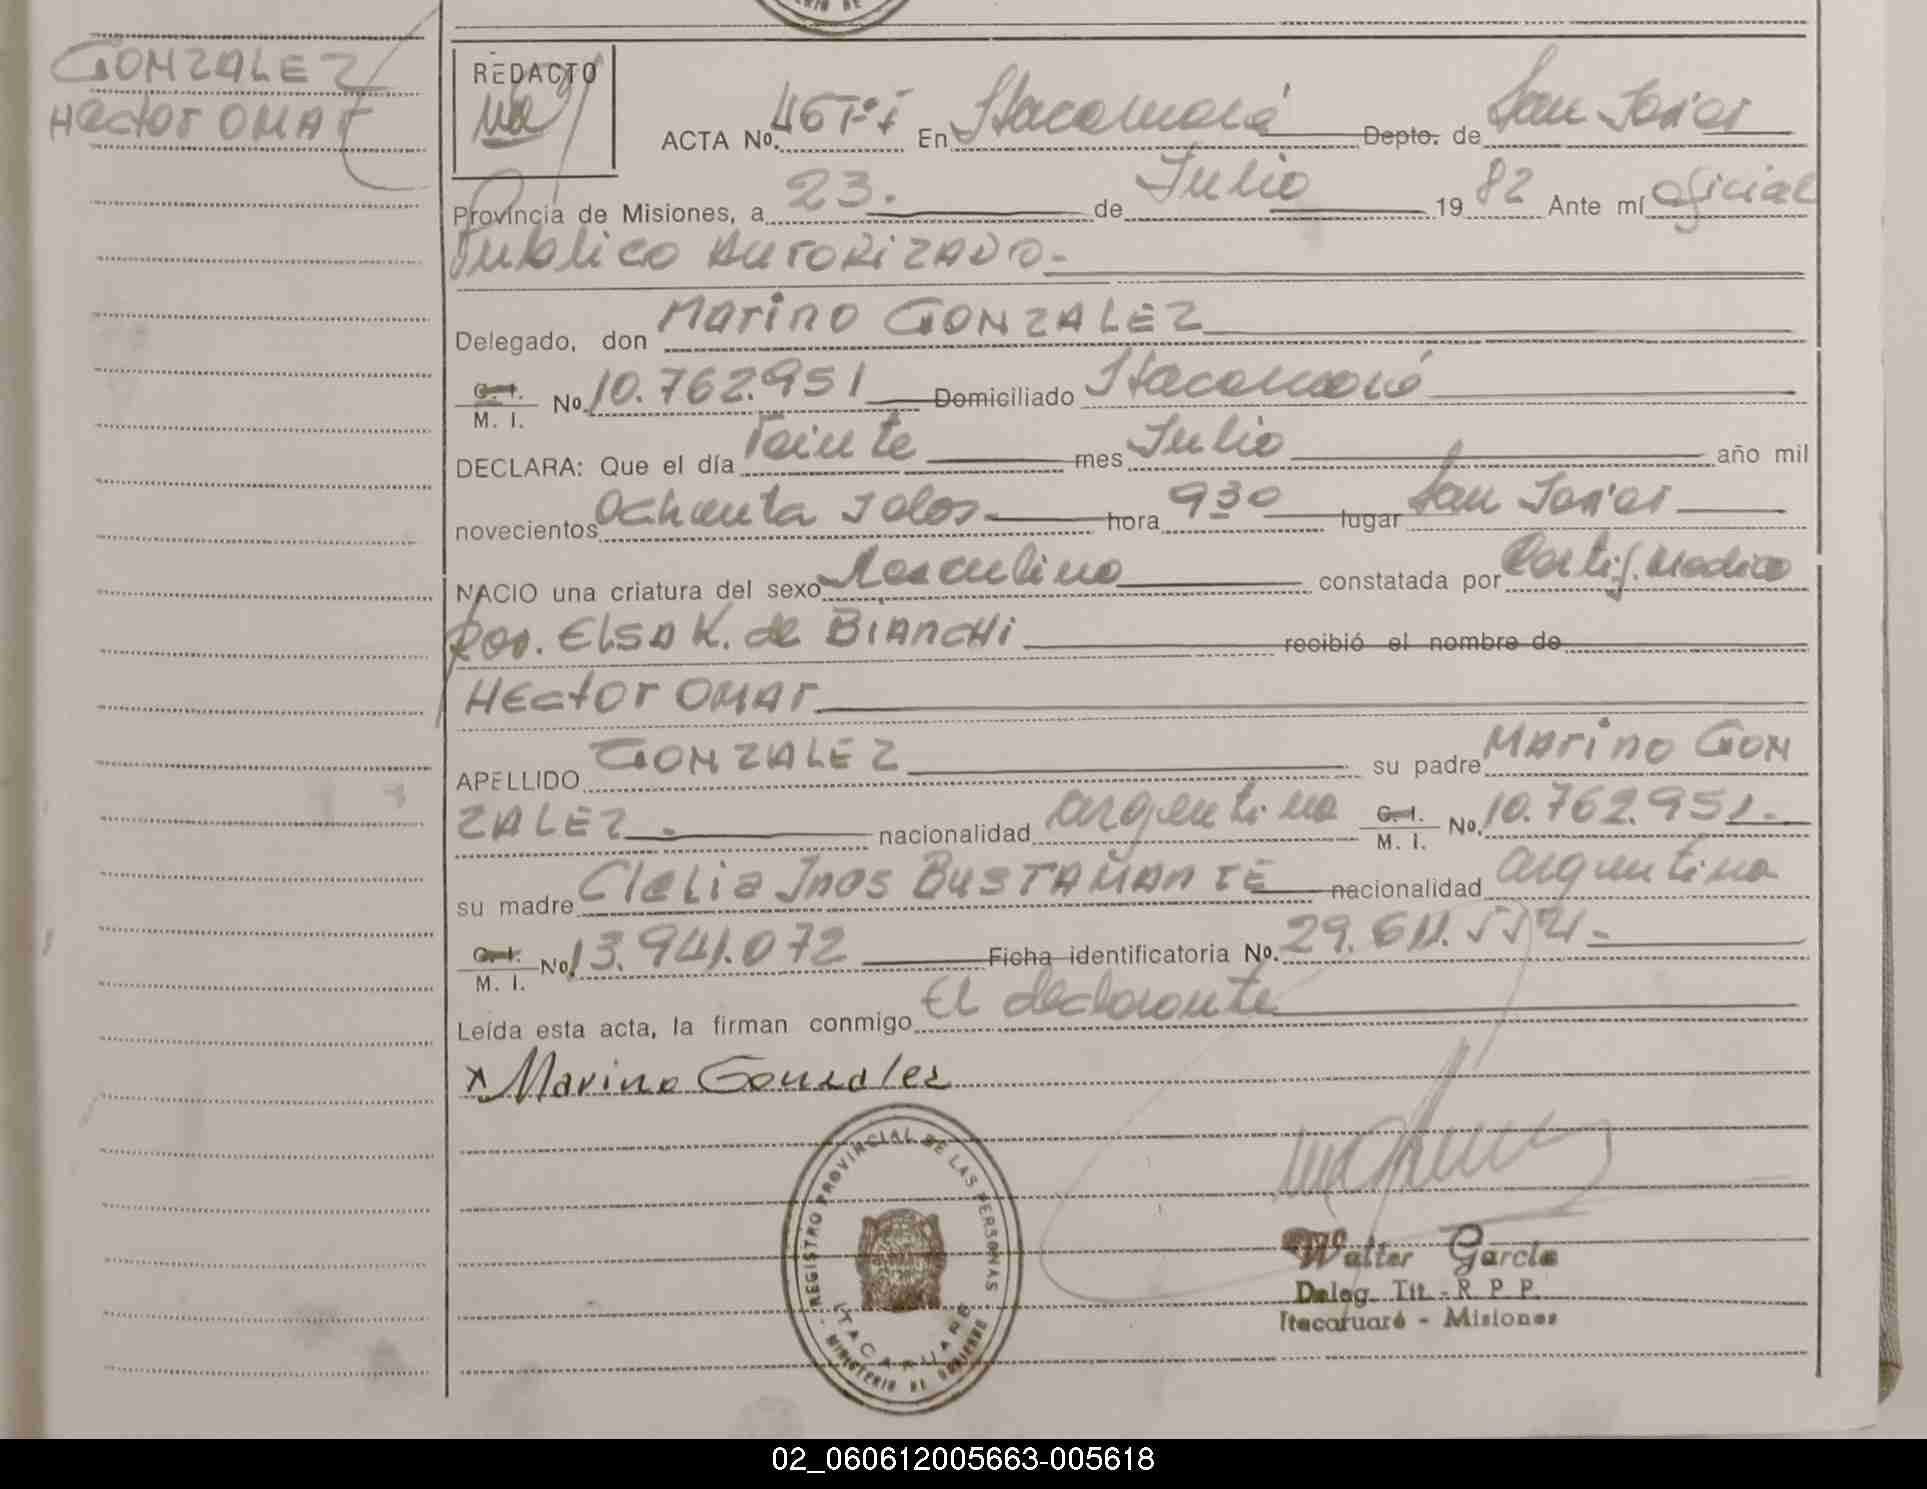 GONZALEZ
Hector OMAR
REDACTO
ACTA No. 46 T-I En Itacaruaré Depto. de San Javier
Provincia de Misiones, a 23. de Julio 19 82 Ante mí Oficial
Publico AUTORIZADO.-
Delegado, don Marino GONZALEZ
C. I. M. I. No. 10.762.951 Domiciliado Itacaruaré
DECLARA: Que el día Veinte mes Julio año mil
novecientos Ochenta y dos.- hora 9 30 lugar San Javier
NACIO una criatura del sexo Masculino constatada por Certif. Medico
Por. ELSA K. de BIANCHI recibió el nombre de
HEctor OMAR
APELLIDO GONZALEZ su padre Marino GON
ZALEZ.- nacionalidad argentina C. I. M. I. No. 10.762.951.-
su madre Clelia Ines BUSTAMANTE nacionalidad argentina
C. I. M. I. No. 13.941.072 Ficha identificatoria No. 29.611.
Leída esta acta, la firman conmigo El declarante
x Marino Gonzalez
REGISTRO PROVINCIAL DE LAS PERSONAS
ITACARUARE
MINISTERIO DE GOBIERNO
Walter García
Deleg. Tit. - R. P. P.
Itacaruaré - Misiones
02_060612005663-005618